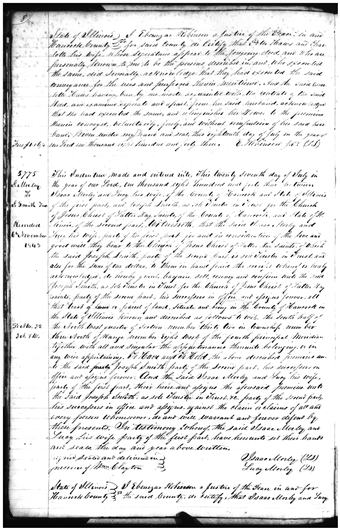 State of Illinois } I Ebenezer Robinson a Justice of the Peace in and
Hancock County } for said County do Certify that
his wife, whose signatures appear to the foregoing deed and who are
personally known to me to be the persons described in and who executed
the same, did severally acknowledge that they had executed the said
conveyance for the uses and purposes therein mentioned. And the said
having been by me made acquainted with the contents of the said
deed, and examined separate and apart from her said husband, acknowledged
that she had executed the same, and relinquished her dower to the premises
therein conveyed, voluntarily, freely, and without compulsion of her said hus
band. Given under my hand and seal, this eighteenth day of July in the year of
our Lord one thousand eight hundred and forty three. E. Robinson J.P. (LS)
3775
I. Morley
To
J. Smith
Recorded
1843
This Indenture made and entered into, This twenty seventh day of July in
the year of our Lord, one thousand eight hundred and forty three between
Isaac Morley and Lucy his wife, of the County of Hancock and State of Illinois
of the first part, and Joseph Smith as sole Trustee in Trust for the Church
of Jesus Christ of Latter Day Saints of the County of Hancock, and State of Il
linois, of the second part, Witnesseth, that the said Isaac Morley and
Lucy his wife, party of the first part, for and in consideration of the love and
good will they bear to the Church of Jesus Christ of Latter day Saints of which
the said Joseph Smith party of the second part is sole Trustee in Trust and
also for the Sum of ten dollars, to them in hand paid the receipt whereof is hereby
acknowledged, do hereby grant, bargain, sell, convey and confirm unto the said
Joseph Smith, as sole Trustee in Trust for the Church of Jesus Christ of Latter day
Saints, party of the second part, his successors in office and assigns forever All
that tract of land or parcel of land, situate and lying in the County of Hancock in
the State of Illinois known and described as follows to wit, the South half of
the North West quarter of section number thirty two in township number
three North of Range number eight West of the fourth principal Meridian
Together with all and singular the appurtenances thereunto belonging or in
any wise appertaining. To Have and To Hold, the above described premises un
to the said party Joseph Smith party of the second part, his successors in
office and assigns forever. And the said Isaac Morley and Lucy his wife,
party of the first part, their heirs and assigns the aforesaid premises unto
the said Joseph Smith, as sole Trustee in Trust, &c party of the second part,
his successors in office and assigns, against the claim or claims of all and
every person whomsoever, do and will warrant and forever defend by
these presents. In testimony whereof, the said Isaac Morley and
Lucy his wife party of the first part, have hereunto set their hands
and seals the day and year above written.
Signed Sealed and delivered in } Isaac Morley (LS)
presence of Wm Clayton } Lucy Morley (LS)
State of Illinois } I Ebenezer Robinson a Justice of the Peace in and for
Hancock County } SS the said County, do certify that Isaac Morley and Lucy